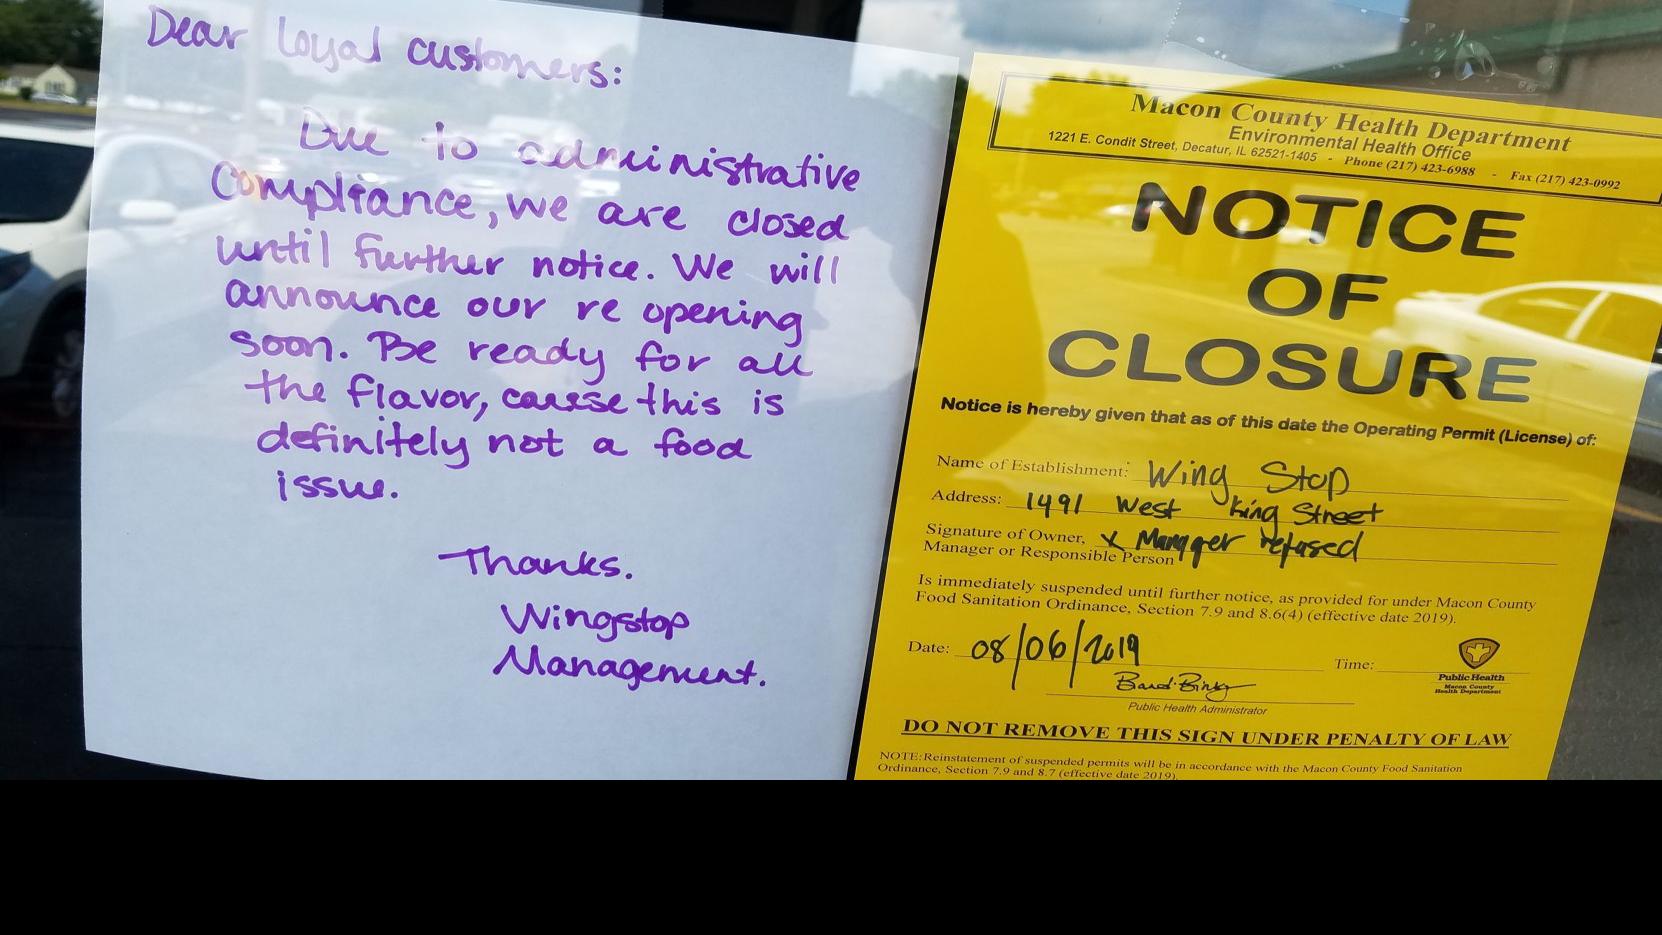 Dear Loyal customers:
Due to administrative
Compliance, we are closed
until further notice. We will
announce our re opening
soon. Be ready for all
the flavor, cause this is
definitely not a food
issue.
Thanks.
Wingstop
Management.
Macon County Health Department
Environmental Health Office
1221 E. Condit Street, Decatur, IL 62521-1405 - Phone (217) 423-6988 - Fax (217) 423-0992
NOTICE
OF
CLOSURE
Notice is hereby given that as of this date the Operating Permit (License) of:
Name of Establishment: Wing Stop
Address: 1491 West King Street
Signature of Owner, x Manager refused
Manager or Responsible Person
Is immediately suspended until further notice, as provided for under Macon County
Food Sanitation Ordinance, Section 7.9 and 8.6(4) (effective date 2019).
Date: 08/06/2019 Time:
Public Health Administrator
Public Health
Macon County
Health Department
DO NOT REMOVE THIS SIGN UNDER PENALTY OF LAW
NOTE: Reinstatement of suspended permits will be in accordance with the Macon County Food Sanitation
Ordinance, Section 7.9 and 8.7 (effective date 2019).